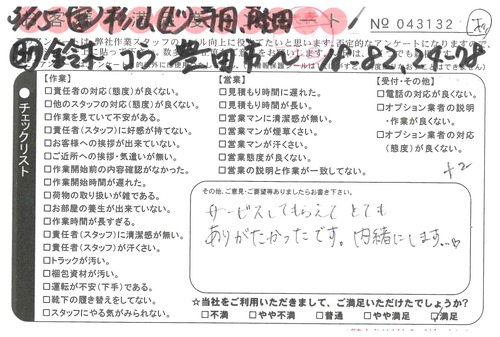 お客様アンケート
№ 043132
鈴木
チェックリスト
【作業】
□責任者の対応(態度)が良くない。
□他のスタッフの対応(態度)が良くない。
□作業を見ていて不安がある。
□責任者(スタッフ)に好感が持てない。
□お客様への挨拶が出来ていない。
□ご近所への挨拶・気遣いが無い。
□作業開始前の内容確認がなかった。
□作業開始時間が遅れた。
□荷物の取り扱いが雑である。
□お部屋の養生が出来ていない。
□作業時間が長すぎる。
□責任者(スタッフ)に清潔感が無い。
□責任者(スタッフ)が汗くさい。
□トラックが汚い。
□梱包資材が汚い。
□運転が不安(下手)である。
□靴下の履き替えをしてない。
□スタッフにやる気がみられない。
【営業】
□見積もり時間に遅れた。
□見積もり時間が長い。
□営業マンに清潔感が無い。
□営業マンが煙草くさい。
□営業マンが汗くさい。
□営業態度が良くない。
□営業の説明と作業が一致してない。
【受付・その他】
□電話の対応が良くない。
□オプション業者の説明
・作業が良くない。
□オプション業者の対応
(態度)が良くない。
+2
その他、ご意見・ご要望等ありましたらお書き下さい。
サービスしてもらえて とても
ありがたかったです。内緒にします…♡
☆当社をご利用いただきまして、ご満足いただけたでしょうか?
□不満 □やや不満 □普通 □やや満足 ☑満足